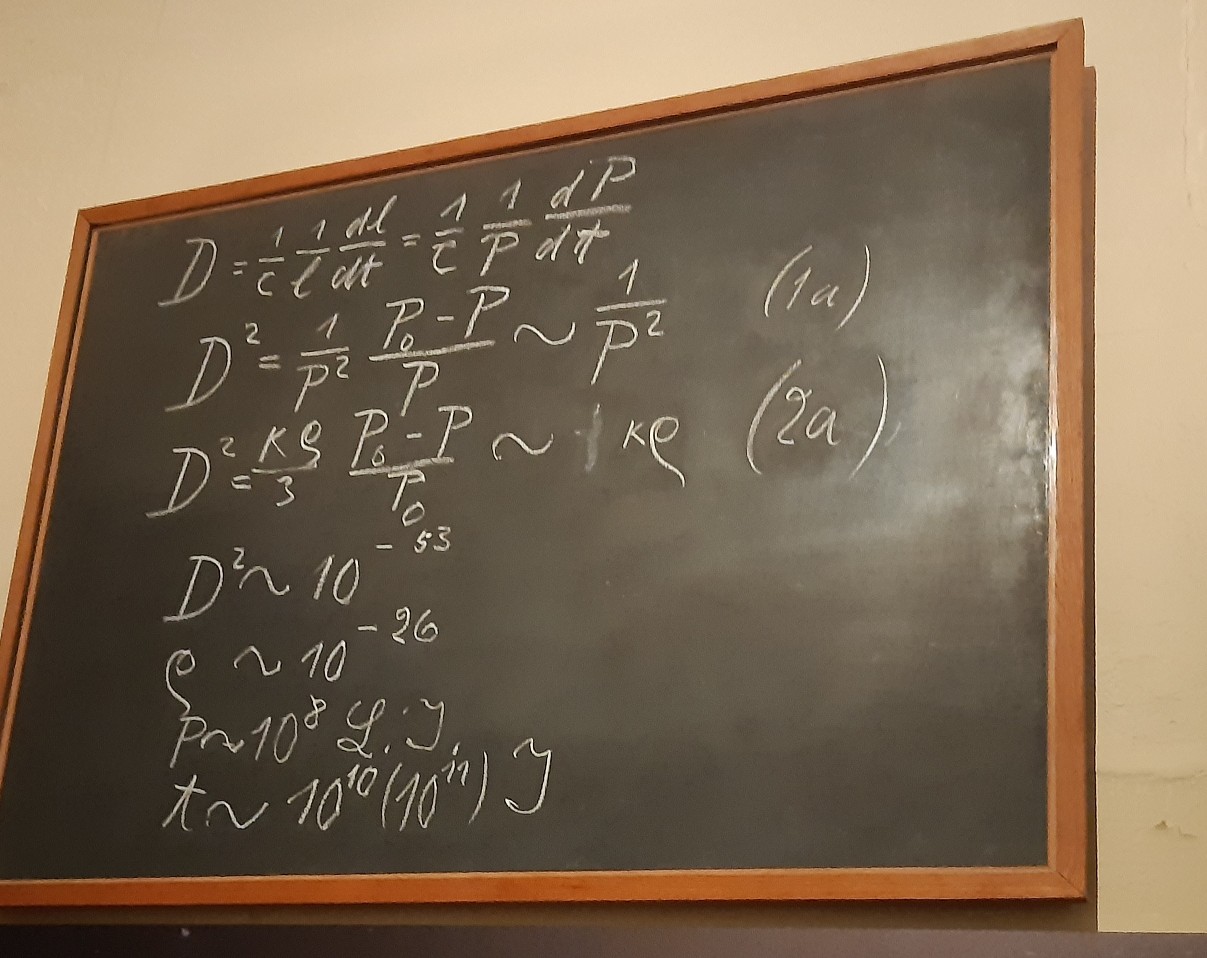 D = 1/c 1/l dl/dt = 1/c 1/P dP/dt
D² = 1/P² (P₀-P)/P ~ 1/P² (1a)
D² = κρ/3 (P₀-P)/P₀ ~ κρ (2a)
D² ~ 10⁻⁵³
ρ ~ 10⁻²⁶
P ~ 10⁸ L.y.
t ~ 10¹⁰(10¹¹) y